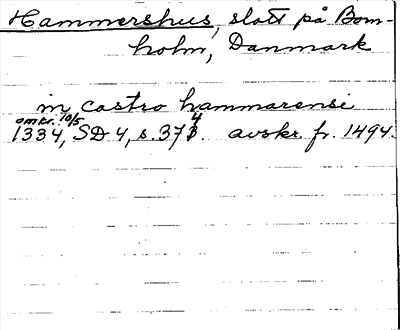 Hammershus, slott på Born-
holm, Danmark
in castro hammarensi
omkr. 10/5
1334, SD 4, s. 374. avskr. fr. 1494.